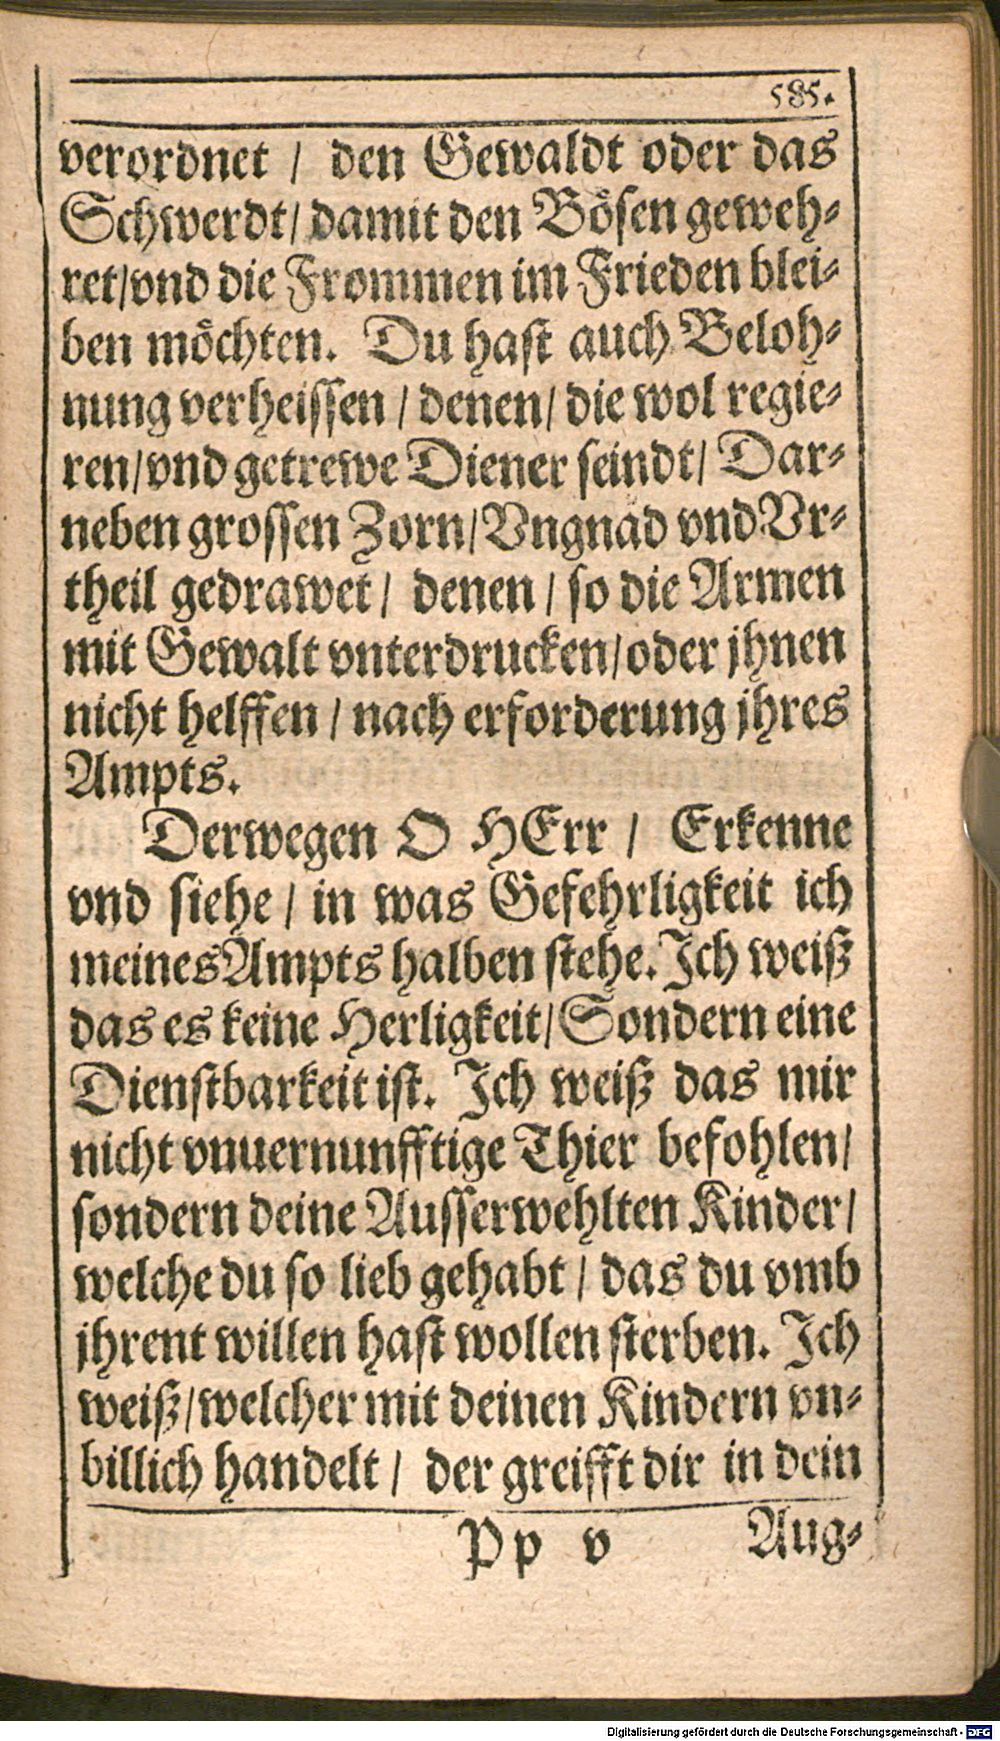 585.
verordnet / den Gewaldt oder das
Schwerdt/ damit den Bösen geweh-
ret/vnd die Frommen im Frieden blei-
ben möchten. Du hast auch Beloh-
nung verheissen / denen/ die wol regie-
ren/vnd getrewe Diener seindt/ Dar-
neben grossen Zorn/Vngnad vnd Vr-
theil gedrawet / denen / so die Armen
mit Gewalt vnterdrucken/oder jhnen
nicht helffen / nach erforderung jhres
Ampts.
Derwegen O HErr / Erkenne
vnd siehe / in was Gefehrligkeit ich
meines Ampts halben stehe. Ich weiß
das es keine Herligkeit/Sondern eine
Dienstbarkeit ist. Ich weiß das mir
nicht vnuernunfftige Thier befohlen/
sondern deine Ausserwehlten Kinder/
welche du so lieb gehabt / das du vmb
jhrent willen hast wollen sterben. Ich
weiß/welcher mit deinen Kindern vn-
billich handelt / der greifft dir in dein
Pp v Aug-
Digitalisierung gefördert durch die Deutsche Forschungsgemeinschaft - DFG